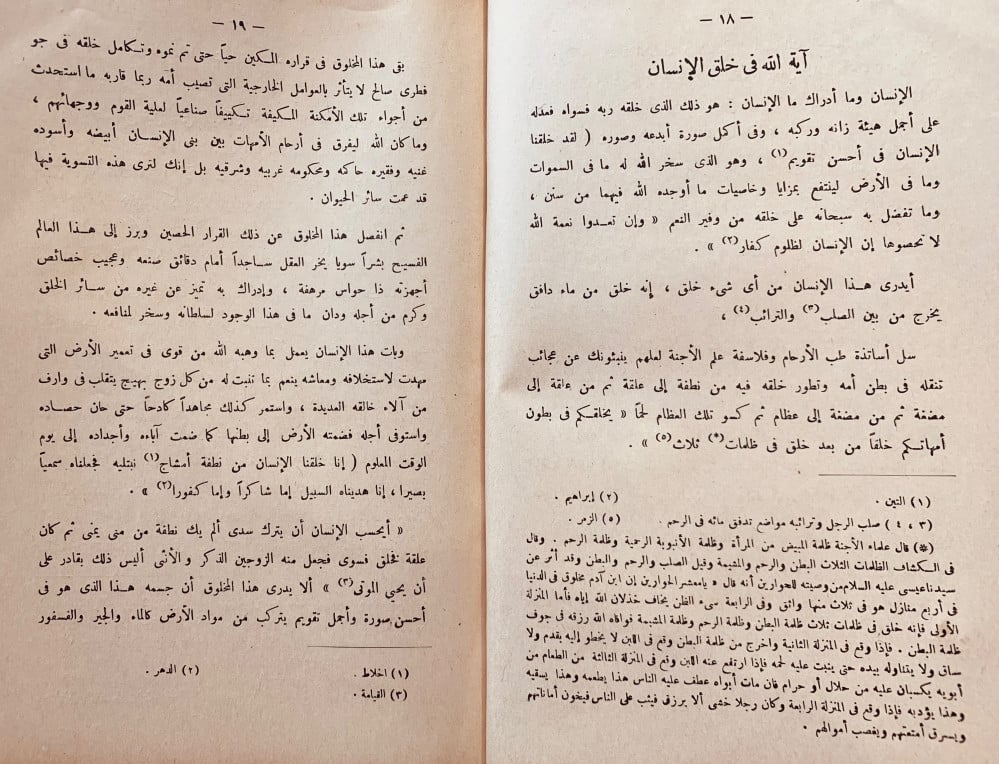 — ١٨ —
آية الله فى خلق الإنسان
الإنسان وما أدراك ما الإنسان : هو ذلك الذى خلقه ربه فسواه فعدله
على أجمل هيئة زانه وركبه ، وفى أكمل صورة أبدعه وصوره ( لقد خلقنا
الإنسان فى أحسن تقويم(١) ، وهو الذى سخر الله له ما فى السموات
وما فى الأرض لينتفع بمزايا وخاصيات ما أوجده الله فيهما من سنن ،
وما تفضل به سبحانه على خلقه من وفير النعم « وإن تعـدوا نعمة الله
لا تحصوها إن الإنسان لظلوم كفار(٢) » .
أيدرى هـذا الإنسان من أى شىء خلق ، إنه خلق من ماء دافق
يخرج من بين الصلب(٣) والترائب(٤) ،
سل أساتذة طب الأرحام وفلاسفة علم الأجنة لعلهم ينبئونك عن عجائب
تنقله فى بطن أمه وتطور خلقه فيه من نطفة إلى علقة ثم من علقة إلى
مضغة ثم من مضغة إلى عظام ثم كسو تلك العظام لحماً « يخلقكم فى بطون
أمهاتكم خلقاً من بعد خلق فى ظلمات(*) ثلاث(٥) » .
(١) التين . (٢) إبراهيم .
(٣ ، ٤ ) صلب الرجل وترائبه مواضع تدفق مائه فى الرحم . (٥) الزمر .
(*) قال علماء الأجنة ظلمة المبيض من المرأة وظلمة الأنبوبة الرحمية وظلمة الرحم . وقال
فى الكشاف الظلمات الثلاث البطن والرحم والمشيمة وقيل الصلب والرحم والبطن وقد أثر عن
سيدنا عيسى عليه السلام من وصيته للحوارين أنه قال « يامعشر الحوارين إن ابن آدم مخلوق فى الدنيا
فى أربع منازل هو فى ثلاث منها واثق وفى الرابعة سىء الظن يخاف خذلان الله إياه فأما المنزلة
الأولى فإنه خلق فى ظلمات ثلاث ظلمة البطن وظلمة الرحم وظلمة المشيمة فوافاه الله رزقه فى جوف
ظلمة البطن . فإذا وقع فى المنزلة الثانية واخرج من ظلمة البطن وقع فى اللبن لا يخطو إليه بقدم ولا
ساق ولا يتناوله بيده حتى ينبت عليه لحمه فإذا ارتفع عنه اللبن وقع فى المنزلة الثالثة من الطعام من
أبويه يكسبان عليه من حلال أو حرام فان مات أبواه عطف عليه الناس هذا يطعمه وهذا يسقيه
وهذا يؤدبه فإذا وقع فى المنزلة الرابعة وكان رجلا خشى ألا يرزق فيثب على الناس فيخون أماناتهم
ويسرق أمتعتهم ويغصب أموالهم .
— ١٩ —
بقى هذا المخلوق فى قراره المكين حياً حتى تم نموه وتكامل خلقه فى جو
فطرى صالح لا يتأثر بالعوامل الخارجية التى تصيب أمه ربما قاربه ما استحدث
من أجواء تلك الأمكنة المكيفة تكييفاً صناعياً لعلية القوم ووجهائهم ،
وما كان الله ليفرق فى أرحام الأمهات بين بنى الإنســان أبيضه وأسوده
غنيه وفقيره حاكمه ومحكومه غربيه وشرقيه بل إنك لترى هذه التسوية فيها
قد عمت سائر الحيوان .
ثم انفصل هذا المخلوق عن ذلك القرار الحصين وبرز إلى هـذا العالم
الفسيح بشراً سويا يخر العقل سـاجداً أمام دقائق صنعه وعجيب خصائص
أجهزته ذا حواس مرهفة ، وإدراك به تميز عن غيره من سـائر الخلق
وكرم من أجله ودان ما فى هذا الوجود لسلطانه وسخر لمنافعه .
وبات هذا الإنسان يعمل بما وهبه الله من قوى فى تعمير الأرض التى
مهدت لاستخلافه ومعاشه ينعم بما تنبت له من كل زوج بهيج يتقلب فى وارف
من آلاء خالقه العديدة ، واستمر كذلك مجاهداً كادحاً حتى حان حصـاده
واستوفى أجله فضمته الأرض إلى بطنها كما ضمت آباءه وأجداده إلى يوم
الوقت المعلوم ( إنا خلقنا الإنسان من نطفة أمشاج(١) نبتليه فجعلناه سميعاً
بصيرا ، إنا هديناه السبيل إما شاكراً وإما كفورا(٢) » .
« أيحسب الإنسان أن يترك سدى ألم يك نطفة من منى يمنى ثم كان
علقة فخلق فسوى فجعل منه الزوجين الذكر والأنثى أليس ذلك بقادر على
أن يحيى الموتى(٣) » ألا يدرى هذا المخلوق أن جسمه هـذا الذى هو فى
أحسن صورة وأجمل تقويم يتركب من مواد الأرض كالماء والجير والفسفور
(١) اخلاط . (٢) الدهر .
(٣) القيامة .